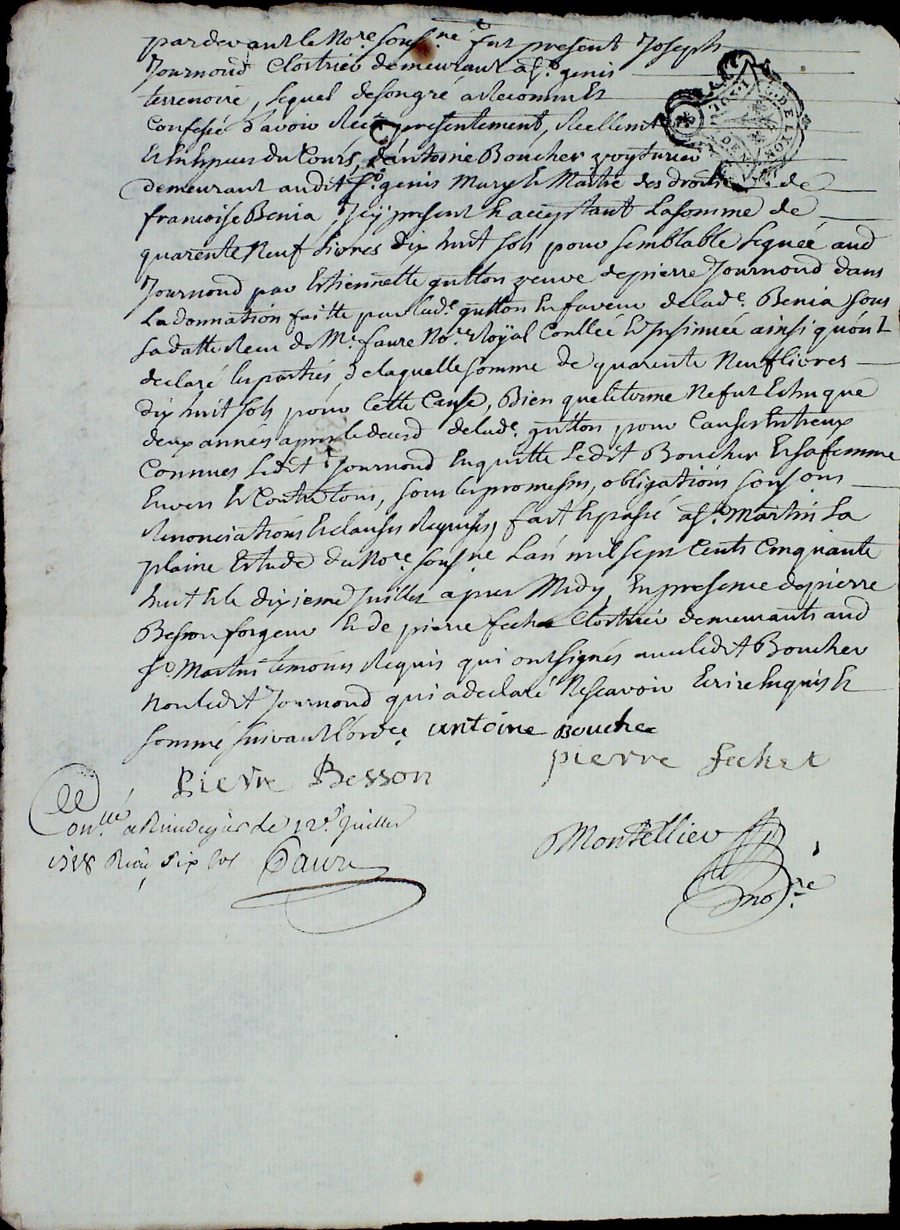 pardevant le No.re sous.né fut present Joseph
Journoud Clostrier demeurant a S.t genis
terrenoire, lequel de son gré a Reconnu Et
Confessé d'avoir Reçu presentement, Reellem.t
Et En Especes du Cours, d'antoine Boucher voyturier
demeurant audit S.t genis Mary Et Maitre des droits de
francoise Benia, Icy present Et acceptant La somme de
quarente Neuf Livres dix huit sols pour semblable Leguée aud
Journoud par Estiennette gutton veuve de pierre Journoud dans
La donnation faitte par lad.e gutton En faveur de lad.e Benia sous
Sa datte Reçu de M.e faure No.re Royal Conllée Et Insinuée ainsi qu'ont
declaré les parties, de laquelle somme de quarente Neuf livres
dix huit sols pour Cette Cause, Bien que le terme Ne fut Echu que
deux années apres le deced de lad.e gutton, pour Causes Entreux
Connues Ledit Journoud En quitte Ledit Boucher Et sa femme
Envers Et Contre tous, sous les promesses, obligations sous
Renonciations Et clauses Requises, fait Et passé a S.t Martin La
plaine Estude du No.re sous.né L'an mil sept Cents Cinquante
huit Et le dixieme Juillet apres Midy, En presence de pierre
Besson forgeur Et de pierre fechet Clostrier demeurants aud
S.t Martin temoins Requis qui ont signés avec ledit Boucher
Non ledit Journoud qui a declaré Ne scavoir Ecrire Enquis Et
sommé suivant l'ord.e antoine Bouche
pierre fechet
Pierre Besson
Con.llé a Rivedegier le 12.e Juillet
1758 Reçu six sols Faure
Montellier
no.re
G. DE LYON
DEN